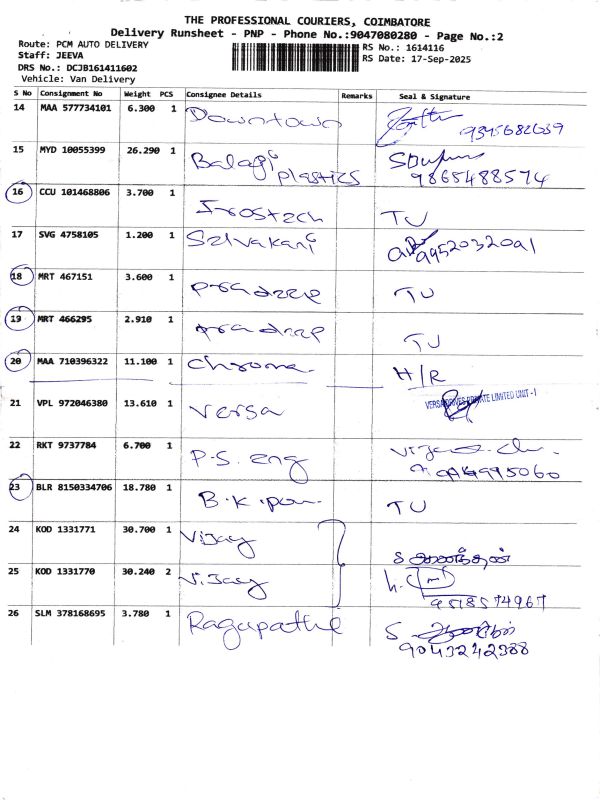 THE PROFESSIONAL COURIERS, COIMBATORE
Delivery Runsheet - PNP - Phone No.:9047080280 - Page No.:2
Route: PCM AUTO DELIVERY
Staff: JEEVA
DRS No.: DCJB161411602
Vehicle: Van Delivery
RS No.: 1614116
RS Date: 17-Sep-2025
S No Consignment No Weight PCS Consignee Details Remarks Seal & Signature
14 MAA 577734101 6.300 1 Downtown 9345682639
15 MYD 10055399 26.290 1 Balaji plastics
9865488574
16 CCU 101468806 3.700 1 Frostech TU
17 SVG 4758105 1.200 1 Selvakani 9952032091
18 MRT 467151 3.600 1 pradeep TU
19 MRT 466295 2.910 1 pradeep TU
20 MAA 710396322 11.100 1 Chroma H/R
21 VPL 972046380 13.610 1 Versa PRIVATE LIMITED UNIT -1
22 RKT 9737784 6.700 1 P.S. eng
23 BLR 8150334706 18.780 1 B.K. TU
24 KOD 1331771 30.700 1 Vijay
25 KOD 1331770 30.240 2 Vijay
9518574967
26 SLM 378168695 3.780 1 Ragupathi S.
9043242388